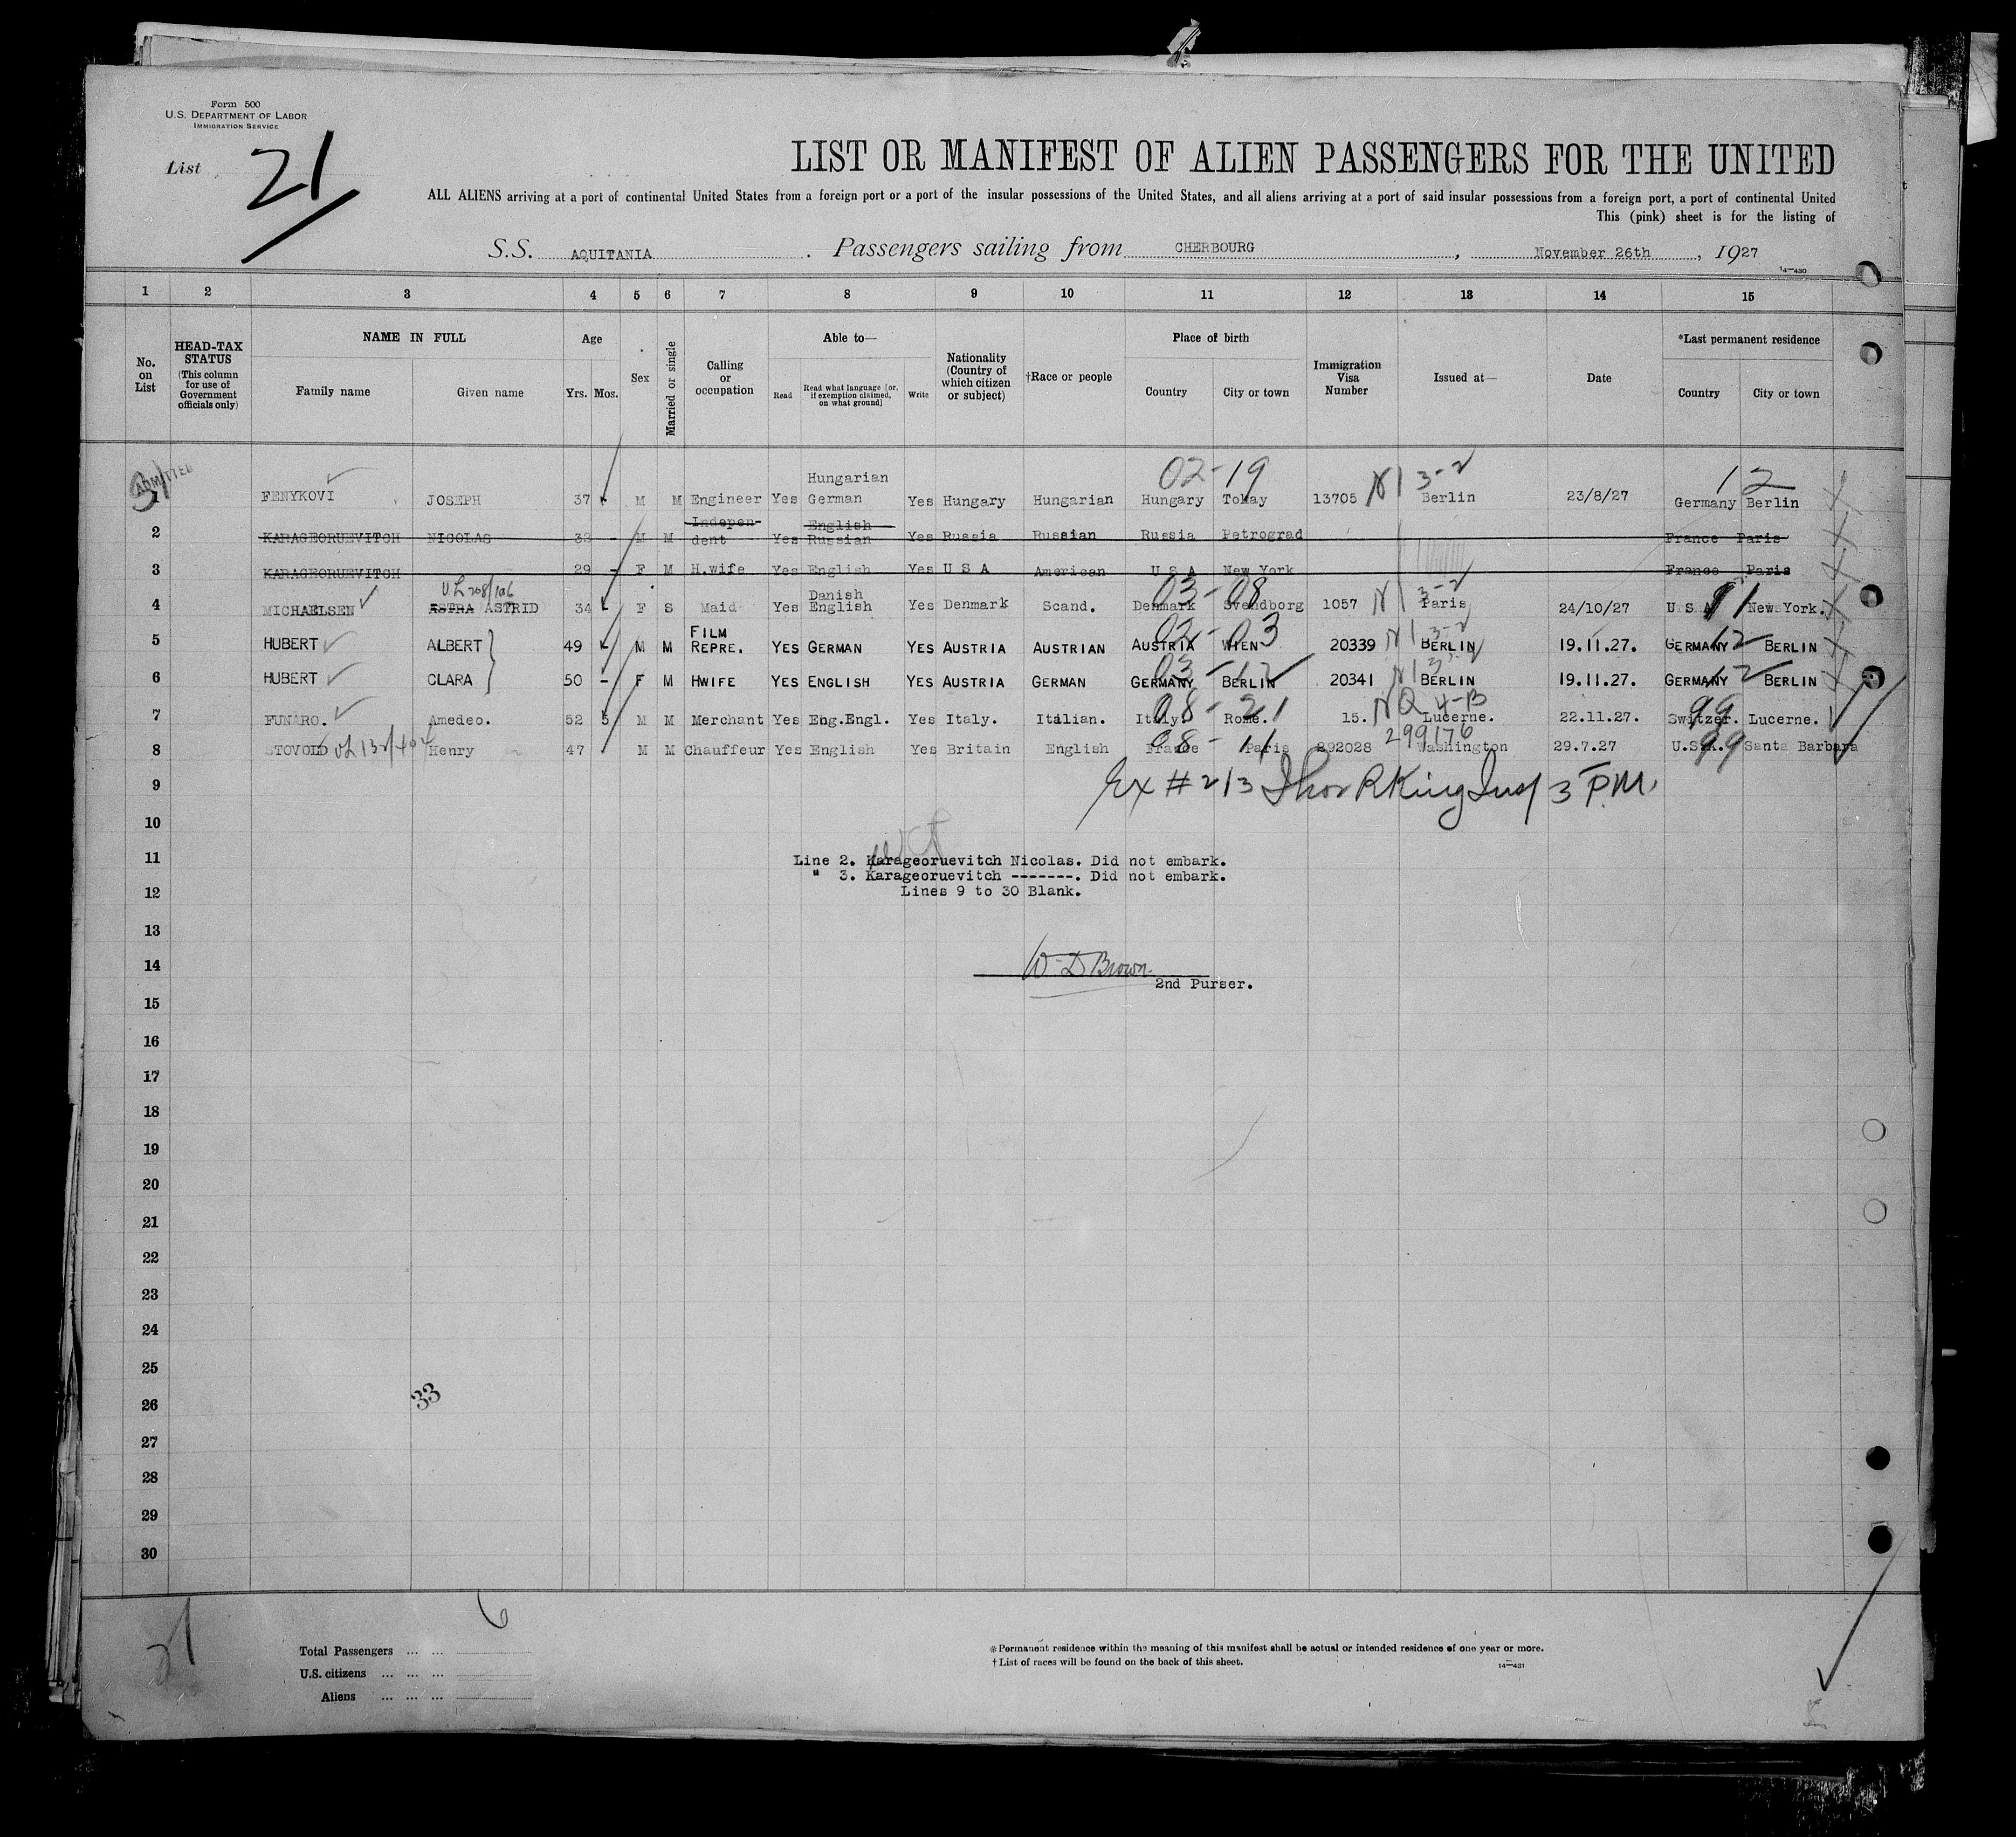 Form 500
U.S. DEPARTMENT OF LABOR
IMMIGRATION SERVICE
List 21
LIST OR MANIFEST OF ALIEN PASSENGERS FOR THE UNITED
ALL ALIENS arriving at a port of continental United States from a foreign port or a port of the insular possessions of the United States, and all aliens arriving at a port of said insular possessions from a foreign port, a port of continental United
This (pink) sheet is for the listing of
S.S. AQUITANIA. Passengers sailing from CHERBOURG, November 26th, 1927
14—430
1 2 3 4 5 6 7 8 9 10 11 12 13 14 15
No. on List
HEAD-TAX STATUS (This column for use of Government officials only)
NAME IN FULL
Family name Given name
Age
Yrs. Mos.
Sex
Married or single
Calling or occupation
Able to—
Read Read what language [or, if exemption claimed, on what ground] Write
Nationality (Country of which citizen or subject)
†Race or people
Place of birth
Country City or town
Immigration Visa Number
Issued at—
Date
*Last permanent residence
Country City or town
ADMITTED
02-19 3-2 12
1 FENYKOVI JOSEPH 37 - M M Engineer Yes Hungarian German Yes Hungary Hungarian Hungary Tokay 13705 Berlin 23/8/27 Germany Berlin
2 KARAGEORUEVITCH NICOLAS 38 - M M Indepen-dent Yes English Russian Yes Russia Russian Russia Petrograd France Paris
3 KARAGEORUEVITCH 29 - F M H.wife Yes English Yes U S A American U S A New York France Paris
03-08 3-2
4 MICHAELSEN ASTRA ASTRID 34 - F S Maid Yes Danish English Yes Denmark Scand. Denmark Svendborg 1057 Paris 24/10/27 U S A New York.
02-03 3-2 12
5 HUBERT ALBERT 49 - M M FILM REPRE. YES GERMAN YES AUSTRIA AUSTRIAN AUSTRIA WIEN 20339 BERLIN 19.11.27. GERMANY BERLIN
03-12 12
6 HUBERT CLARA 50 - F M HWIFE YES ENGLISH YES AUSTRIA GERMAN GERMANY BERLIN 20341 BERLIN 19.11.27. GERMANY BERLIN
08-21 NQ 4-B 99
7 FUNARO. Amedeo. 52 5 M M Merchant Yes Eng.Engl. Yes Italy. Italian. Italy. Rome. 15. Lucerne. 22.11.27. Switzer. Lucerne.
08-11 299176 99
8 STOVOLD Henry 47 M M Chauffeur Yes English Yes Britain English France Paris 292028 Washington 29.7.27 U.S.A. Santa Barbara
9
Ex #213 R King Insp 3 P.M.
10
11
Line 2. Karageoruevitch Nicolas. Did not embark.
" 3. Karageoruevitch -------. Did not embark.
12
Lines 9 to 30 Blank.
13
14
W D Brown
2nd Purser.
15
16
17
18
19
20
21
22
23
24
25
26
33
27
28
29
30
21
6
Total Passengers ... ...
U.S. citizens ... ... ...
Aliens ... ... ...
*Permanent residence within the meaning of this manifest shall be actual or intended residence of one year or more.
†List of races will be found on the back of this sheet.
14—431